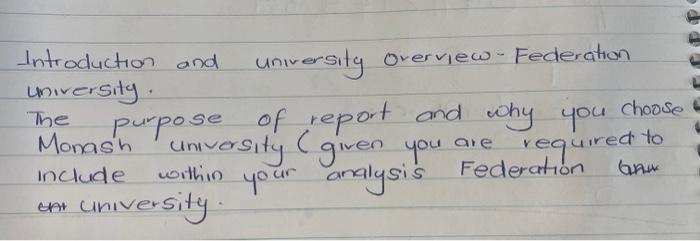 Introduction and university overview - Federation
university.
The purpose of report and why you choose
Monash university (given you are required to
include within your analysis Federation
university.